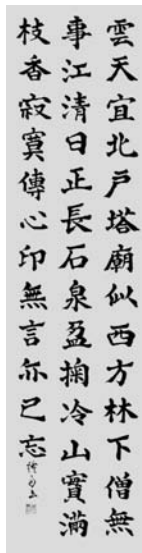 雲天宜北戶塔廟似西方林下僧無
事江清日正長石泉盈掬冷山實滿
枝香寂寞傳心印無言亦已忘